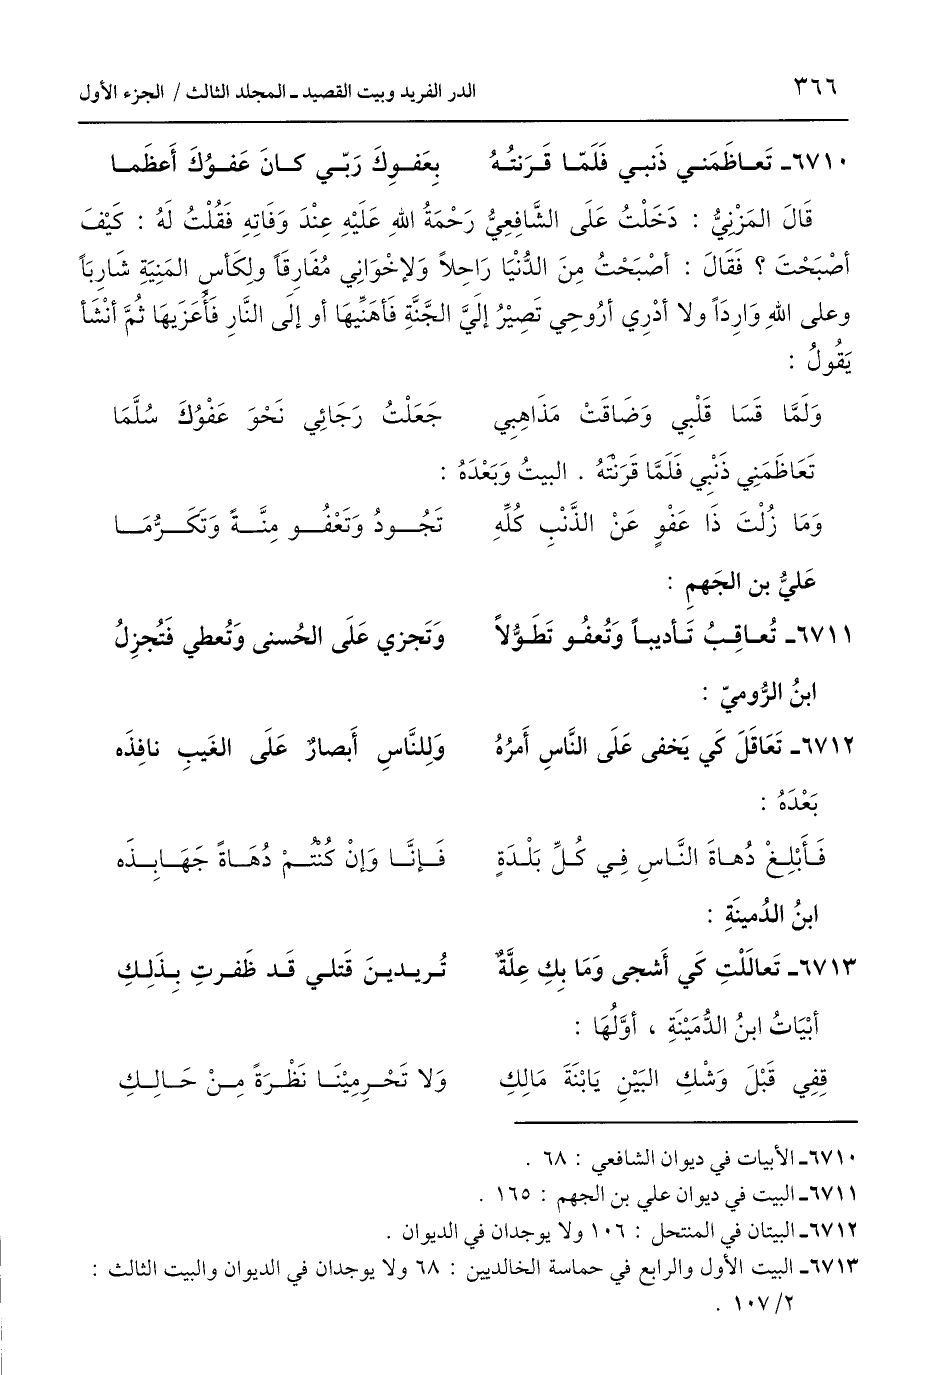 ٣٦٦ الدر الفريد وبيت القصيد ـ المجلد الثالث / الجزء الأول
٦٧١٠ـ تَعاظَمَني ذَنبي فَلَمّا قَرَنتُهُ بِعَفوِكَ رَبّي كانَ عَفوُكَ أَعظَما
قَالَ المَزْنِيُّ : دَخَلْتُ عَلَى الشَّافِعِيُّ رَحْمَةُ اللهِ عَلَيْهِ عِنْدَ وَفَاتِهِ فَقُلْتُ لَهُ : كَيْفَ
أصْبَحْتَ ؟ فَقَالَ : أصْبَحْتُ مِنَ الدُّنْيَا رَاحِلاً وَلإخْوَانِي مُفَارِقاً ولِكَأسِ المَنِيَةِ شَارِبَاً
وعلى اللهِ وَارِدَاً ولا أدْرِي أرُوحِي تَصِيْرُ إلَيَّ الجَّنَّةِ فَأهَنِّيهَا أو إلَى النَّارِ فَأُعَزيهَا ثُمَّ أنْشَأ
يَقُولُ :
وَلَمَّا قَسَا قَلْبِي وَضَاقَتْ مَذَاهِبِي جَعَلْتُ رَجَائِي نَحْوَ عَفْوُكَ سُلَّمَا
تَعَاظَمَنِي ذَنْبِي فَلَمَّا قَرَنْتُهُ . البيتُ وَبَعْدَهُ :
وَمَا زُلْتَ ذَا عَفْوٍ عَنْ الذَّنْبِ كُلِّهِ تَجُودُ وَتَعْفُو مِنَّةً وَتَكَرُّمَا
عَليُّ بن الجَهمِ :
٦٧١١ـ تُعاقِبُ تَأديباً وَتُعفُو تَطَوُّلاً وَتَجزي عَلَى الحُسنى وَتُعطي فَتُجزِلُ
ابنُ الرُّوميّ :
٦٧١٢ـ تَعَاقَلَ كَي يَخفى عَلَى النَّاسِ أَمرُهُ وَلِلنَّاسِ أَبصارٌ عَلَى الغَيبِ نافِذَه
بَعْدَهُ :
فَأَبْلِغْ دُهاةَ النَّاسِ فِي كُلِّ بَلْدَةٍ فَإنَّا وَإنْ كُنْتُمْ دُهَاةً جَهَابِذَه
ابنُ الدُمينَةِ :
٦٧١٣ـ تَعالَلْتِ كَي أَشجى وَمَا بِكِ عِلَّةٌ تُريدينَ قَتلي قَد ظَفرتِ بِذَلِكِ
أبْيَاتُ ابنُ الدُّمَيْنَةِ ، أوَّلُهَا :
قِفِي قَبْلَ وَشْكِ البَيْنِ يَابْنَةَ مَالِكِ وَلا تَحْرِمِيْنَا نَظْرَةً مِنْ حَالِكِ
٦٧١٠ـ الأبيات في ديوان الشافعي : ٦٨ .
٦٧١١ـ البيت في ديوان علي بن الجهم : ١٦٥ .
٦٧١٢ـ البيتان في المنتحل : ١٠٦ ولا يوجدان في الديوان .
٦٧١٣ـ البيت الأول والرابع في حماسة الخالديين : ٦٨ ولا يوجدان في الديوان والبيت الثالث :
٢/ ١٠٧ .